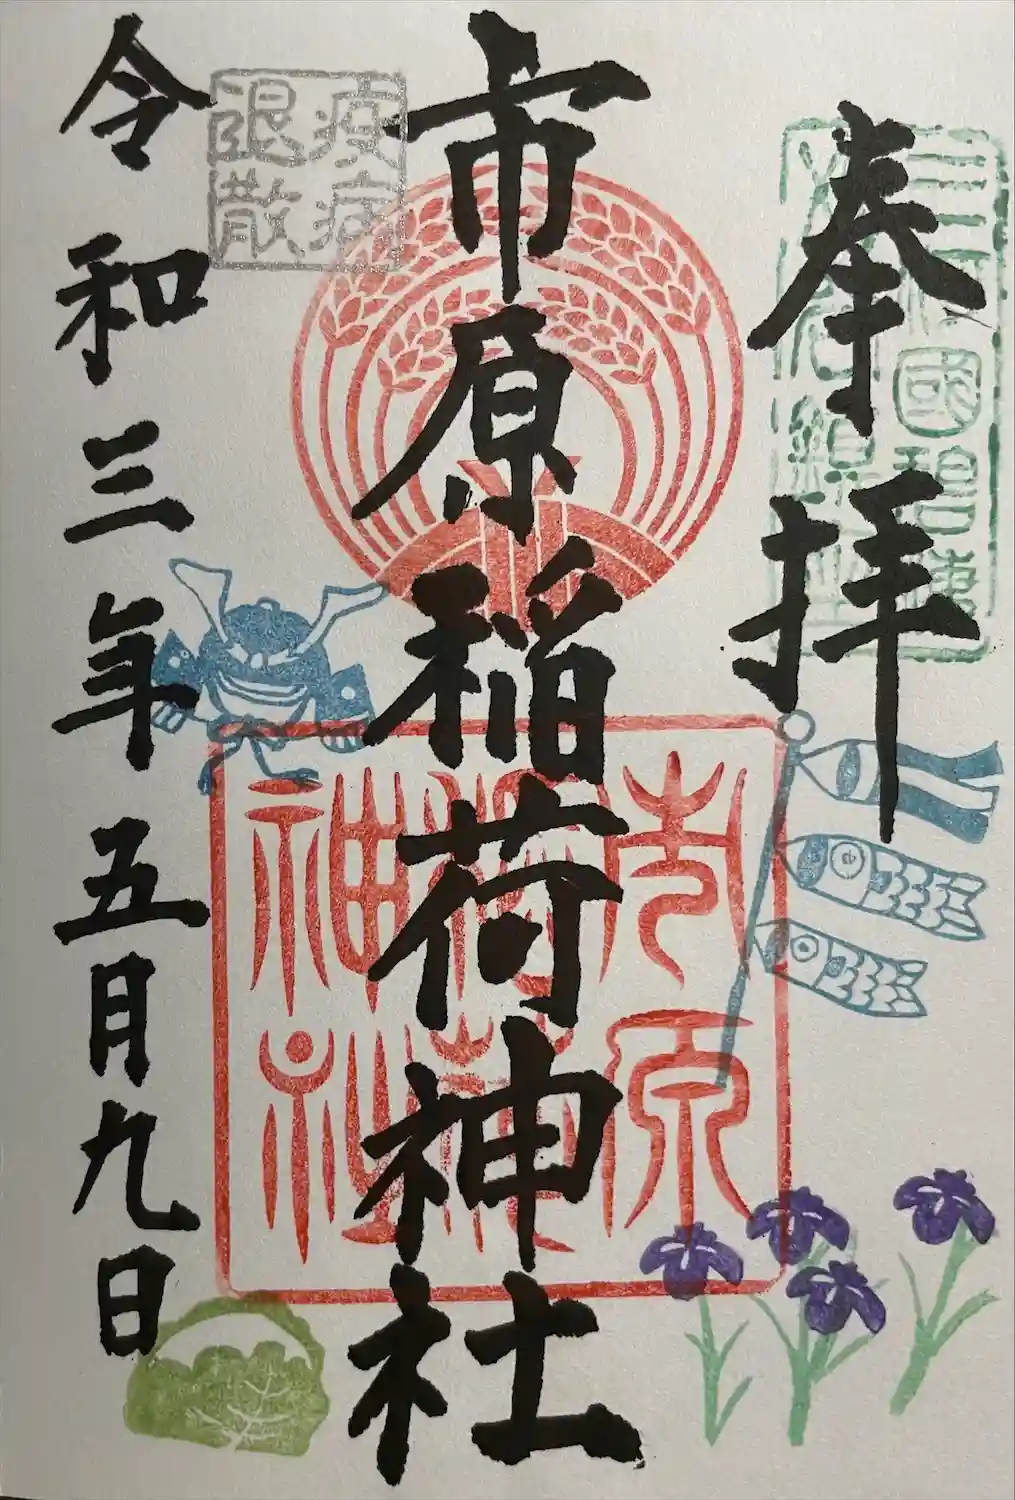 奉拝
市原稲荷神社
令和三年五月九日
疫病
退散
市原
稲荷
神社